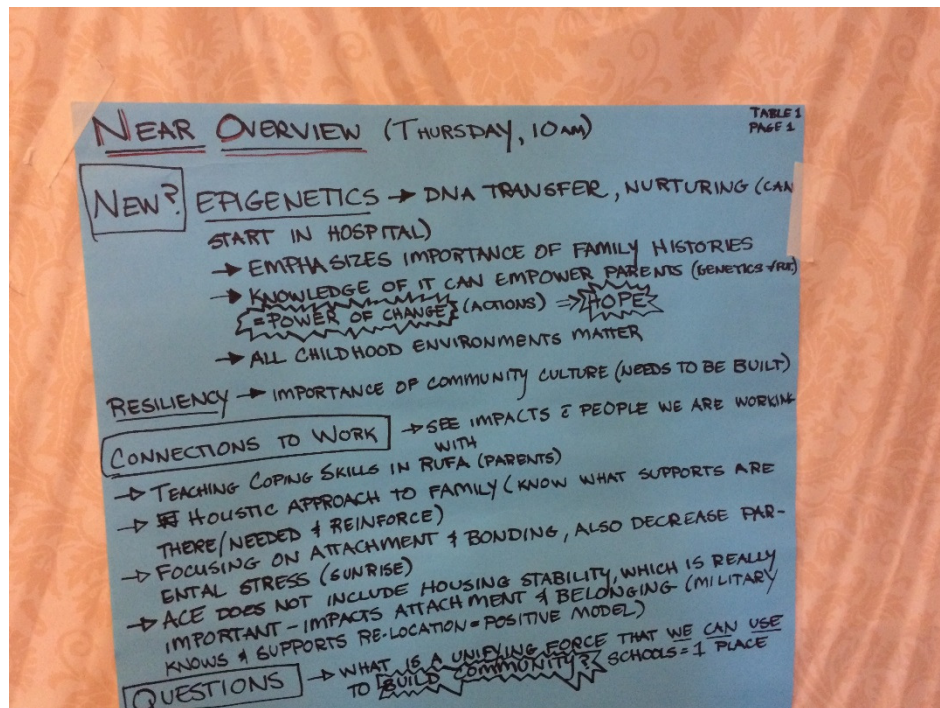 NEAR OVERVIEW (THURSDAY, 10AM)
TABLE 1
PAGE 1
NEW? EPIGENETICS → DNA TRANSFER, NURTURING (CAN
START IN HOSPITAL)
→ EMPHASIZES IMPORTANCE OF FAMILY HISTORIES
→ KNOWLEDGE OF IT CAN EMPOWER PARENTS (GENETICS
= POWER OF CHANGE (ACTIONS) ⇒ HOPE
→ ALL CHILDHOOD ENVIRONMENTS MATTER
RESILIENCY → IMPORTANCE OF COMMUNITY CULTURE (NEEDS TO BE BUILT)
CONNECTIONS TO WORK → SEE IMPACTS c̄ PEOPLE WE ARE WORKING
WITH
→ TEACHING COPING SKILLS IN RUFA (PARENTS)
→ HOLISTIC APPROACH TO FAMILY (KNOW WHAT SUPPORTS ARE
THERE/NEEDED & REINFORCE)
→ FOCUSING ON ATTACHMENT & BONDING, ALSO DECREASE PAR-
ENTAL STRESS (SUNRISE)
→ ACE DOES NOT INCLUDE HOUSING STABILITY, WHICH IS REALLY
IMPORTANT - IMPACTS ATTACHMENT & BELONGING (MILITARY
KNOWS & SUPPORTS RE-LOCATION = POSITIVE MODEL)
QUESTIONS → WHAT IS A UNIFYING FORCE THAT WE CAN USE
TO BUILD COMMUNITY? SCHOOLS = 1 PLACE